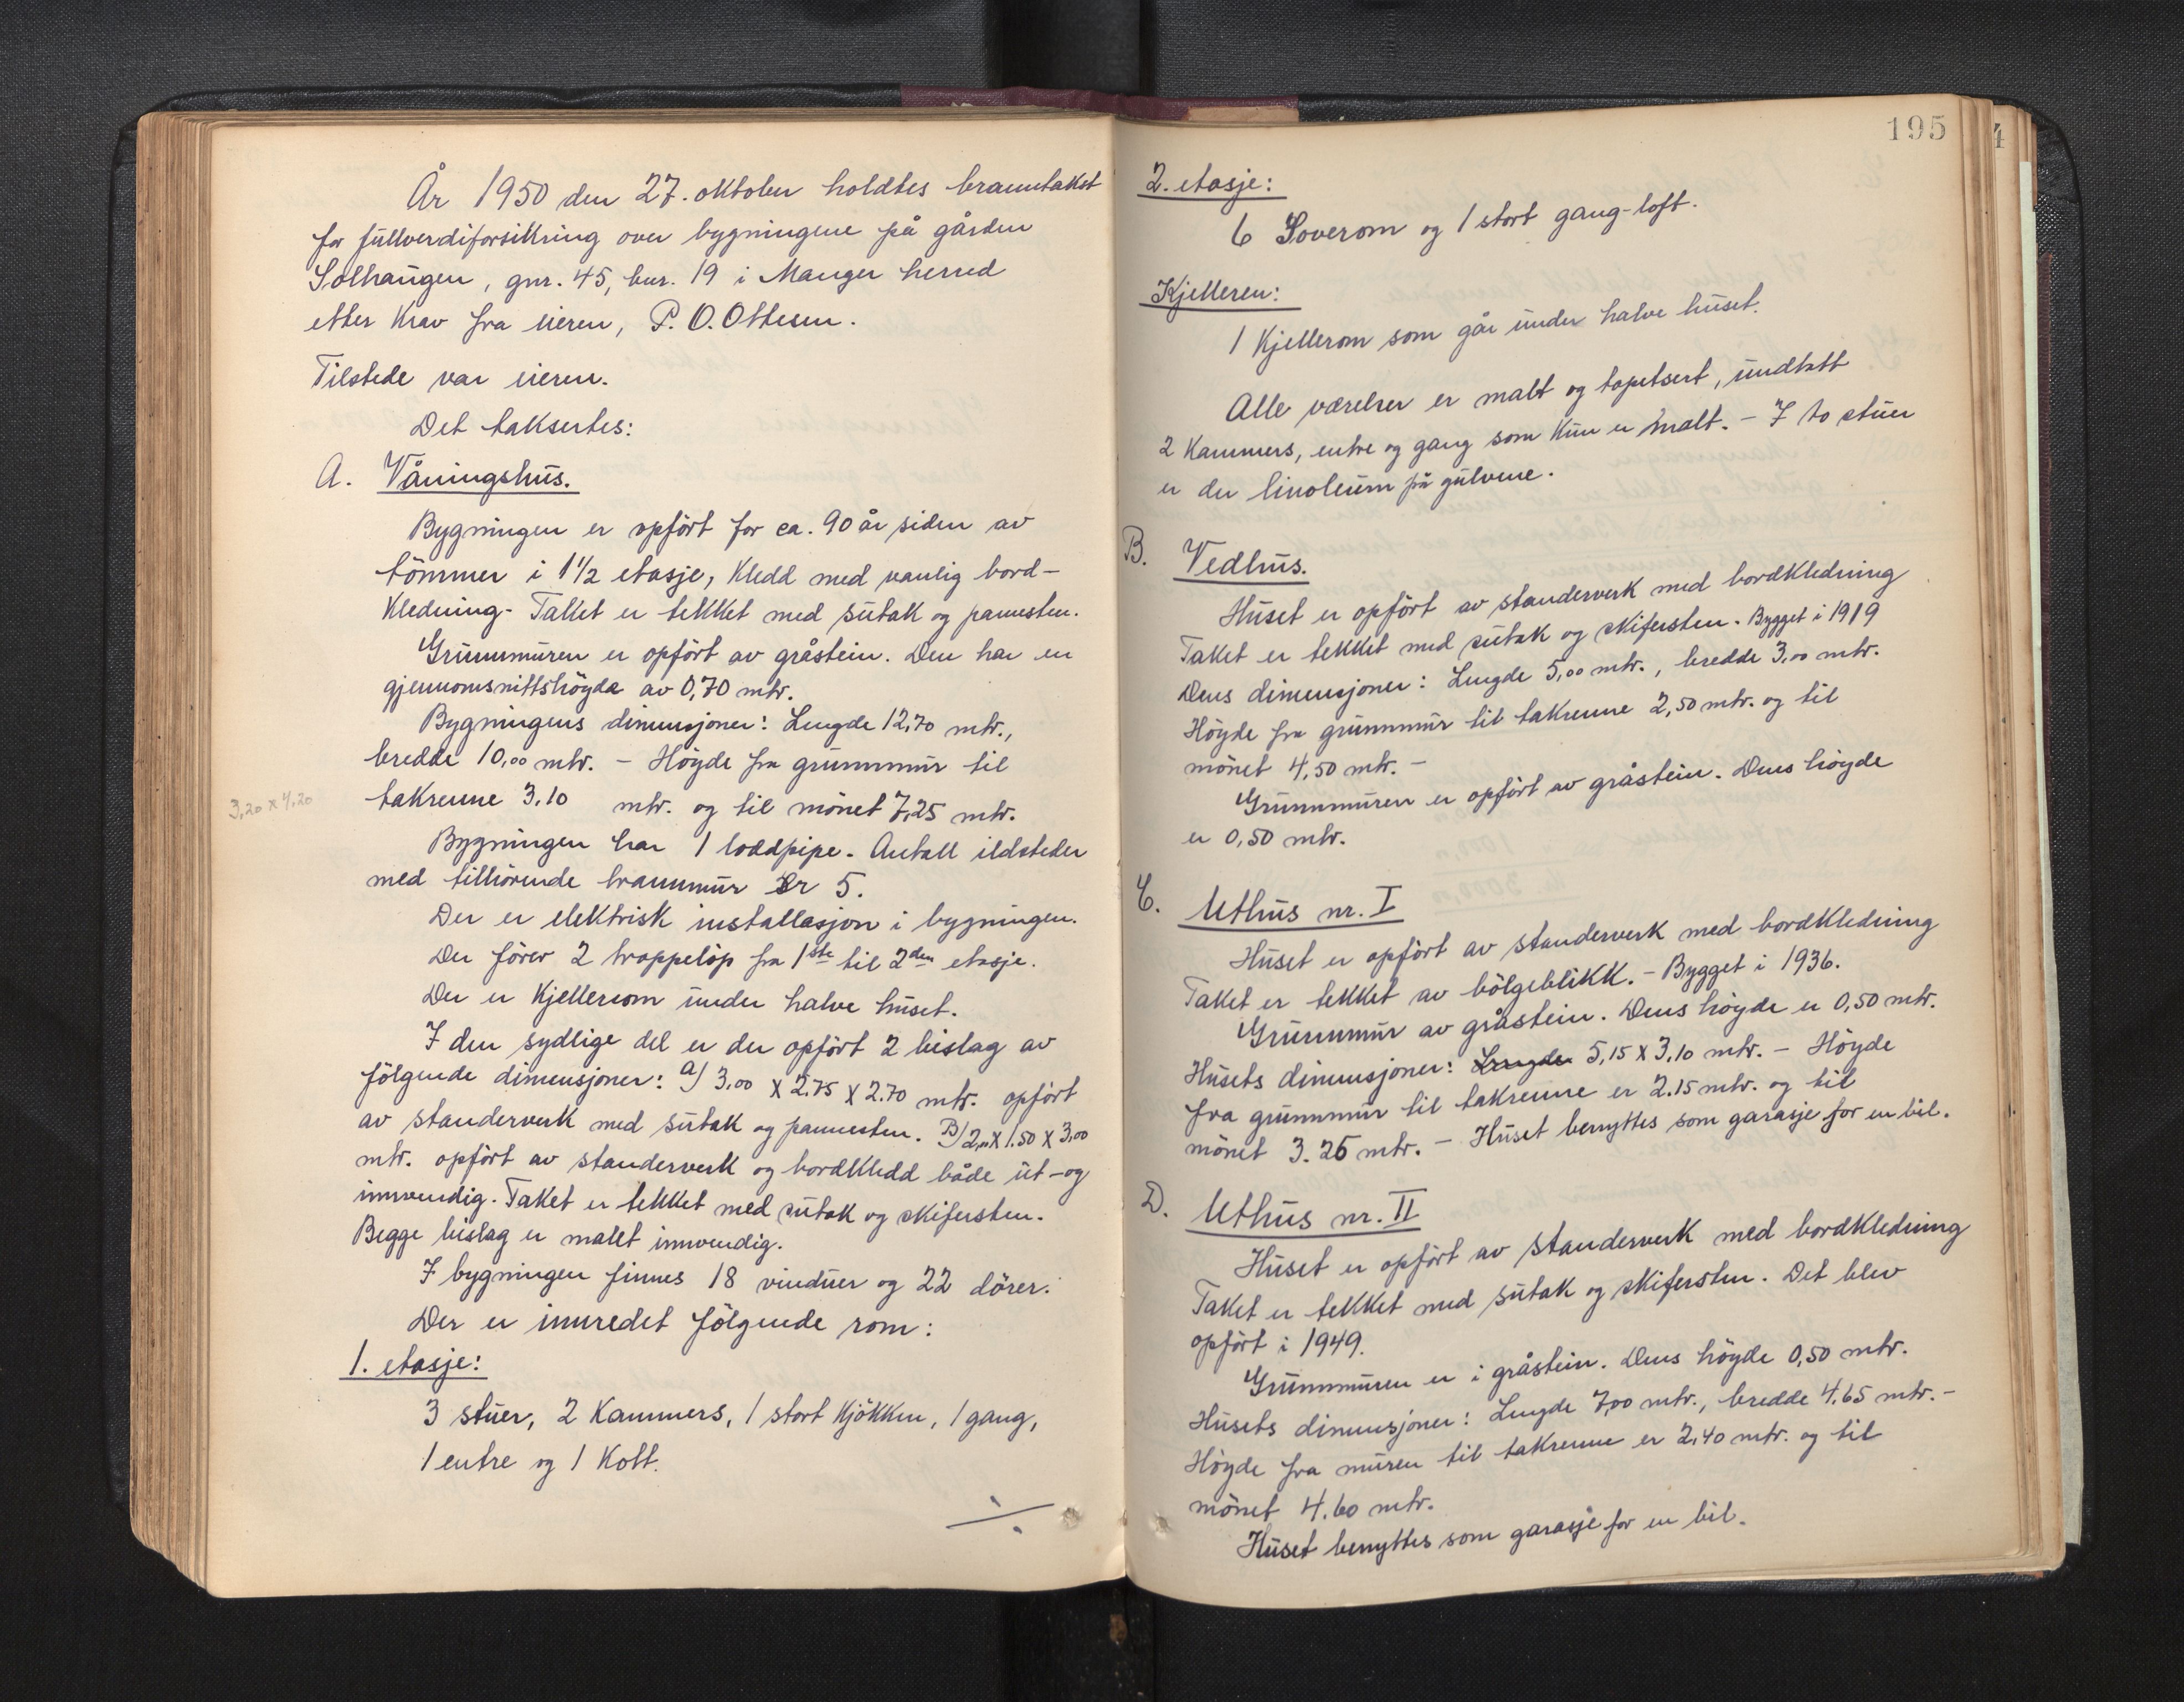 År 1950 den 27. oktober holdtes branntakst
for fullverdiforsikring over bygningene på gården
Solhaugen, gnr. 45, bnr. 19 i Manger herred
etter krav fra eieren, P. O. Ottesen.
Tilstede var eieren.
Det taksertes:
A. Våningshus.
Bygningen er opført for ca. 90 år siden av
tømmer i 1 1/2 etasje, kledd med vanlig bord-
kledning- Taket er tekket med sutak og pannesten.
Grunnmuren er opført av gråstein. Den har en
gjennomsnittshøyde av 0,70 mtr.
Bygningens dimensjoner: Lengde 12,70 mtr.,
bredde 10,00 mtr. - Høyde fra grunnmur til
takrenne 3.10 mtr. og til mønet 7,25 mtr.
3,20 x 4,20
Bygningen har 1 loddpipe. Antall ildsteder
med tilhørende brannmur er 5.
Der er elektrisk installasjon i bygningen.
Der fører 2 trappeløp fra 1ste til 2den etasje.
Der er kjellerrom under halve huset.
I den sydlige del er der opført 2 bislag av
følgende dimensjoner: a) 3,00 x 2.75 x 2.70 mtr. opført
av standerverk med sutak og pannesten. B) 2,00 x 1.50 x 3,00
mtr. opført av standerverk og bordkledd både ut- og
innvendig. Taket er tekket med sutak og skifersten.
Begge bislag er malt innvendig.
I bygningen finnes 18 vinduer og 22 dører.
Der er innredet følgende rom:
1. etasje:
3 stuer, 2 kammers, 1 stort kjøkken, 1 gang,
1 entre og 1 kott.
195
2. etasje:
6 Soverom og 1 stort gang-loft.
Kjelleren:
1 kjellerom som går under halve huset.
Alle værelser er malt og tapetsert, undtatt
2 kammers, entre og gang som kun er malt. - I to stuer
er der linoleum på gulvene.
B. Vedhus.
Huset er opført av standerverk med bordkledning
Taket er tekket med sutak og skifersten. Bygget i 1919
Dens dimensjoner: Lengde 5,00 mtr., bredde 3,00 mtr.
Høyde fra grunnmur til takrenne 2,50 mtr. og til
mønet 4,50 mtr. -
Grunnmuren er opført av gråstein. Dens høyde
er 0,50 mtr.
C. Uthus nr. I
Huset er opført av standerverk med bordkledning
Taket er tekket av bølgeblikk. - Bygget i 1936.
Grunnmur av gråstein. Dens høyde er 0,50 mtr.
Husets dimensjoner: Lengde 5,15 x 3,10 mtr. - Høyde
fra grunnmur til takrenne er 2.15 mtr. og til
mønet 3.25 mtr. - Huset benyttes som garasje for en bil.
D. Uthus nr. II
Huset er opført av standerverk med bordkledning
Taket er tekket med sutak og skifersten. Det blev
opført i 1949.
Grunnmuren er i gråstein. Dens høyde 0,50 mtr.
Husets dimensjoner: Lengde 7,00 mtr., bredde 4,65 mtr. -
Høyde fra muren til takrenne er 2,40 mtr. og til
mønet 4.60 mtr.
Huset benyttes som garasje for en bil.